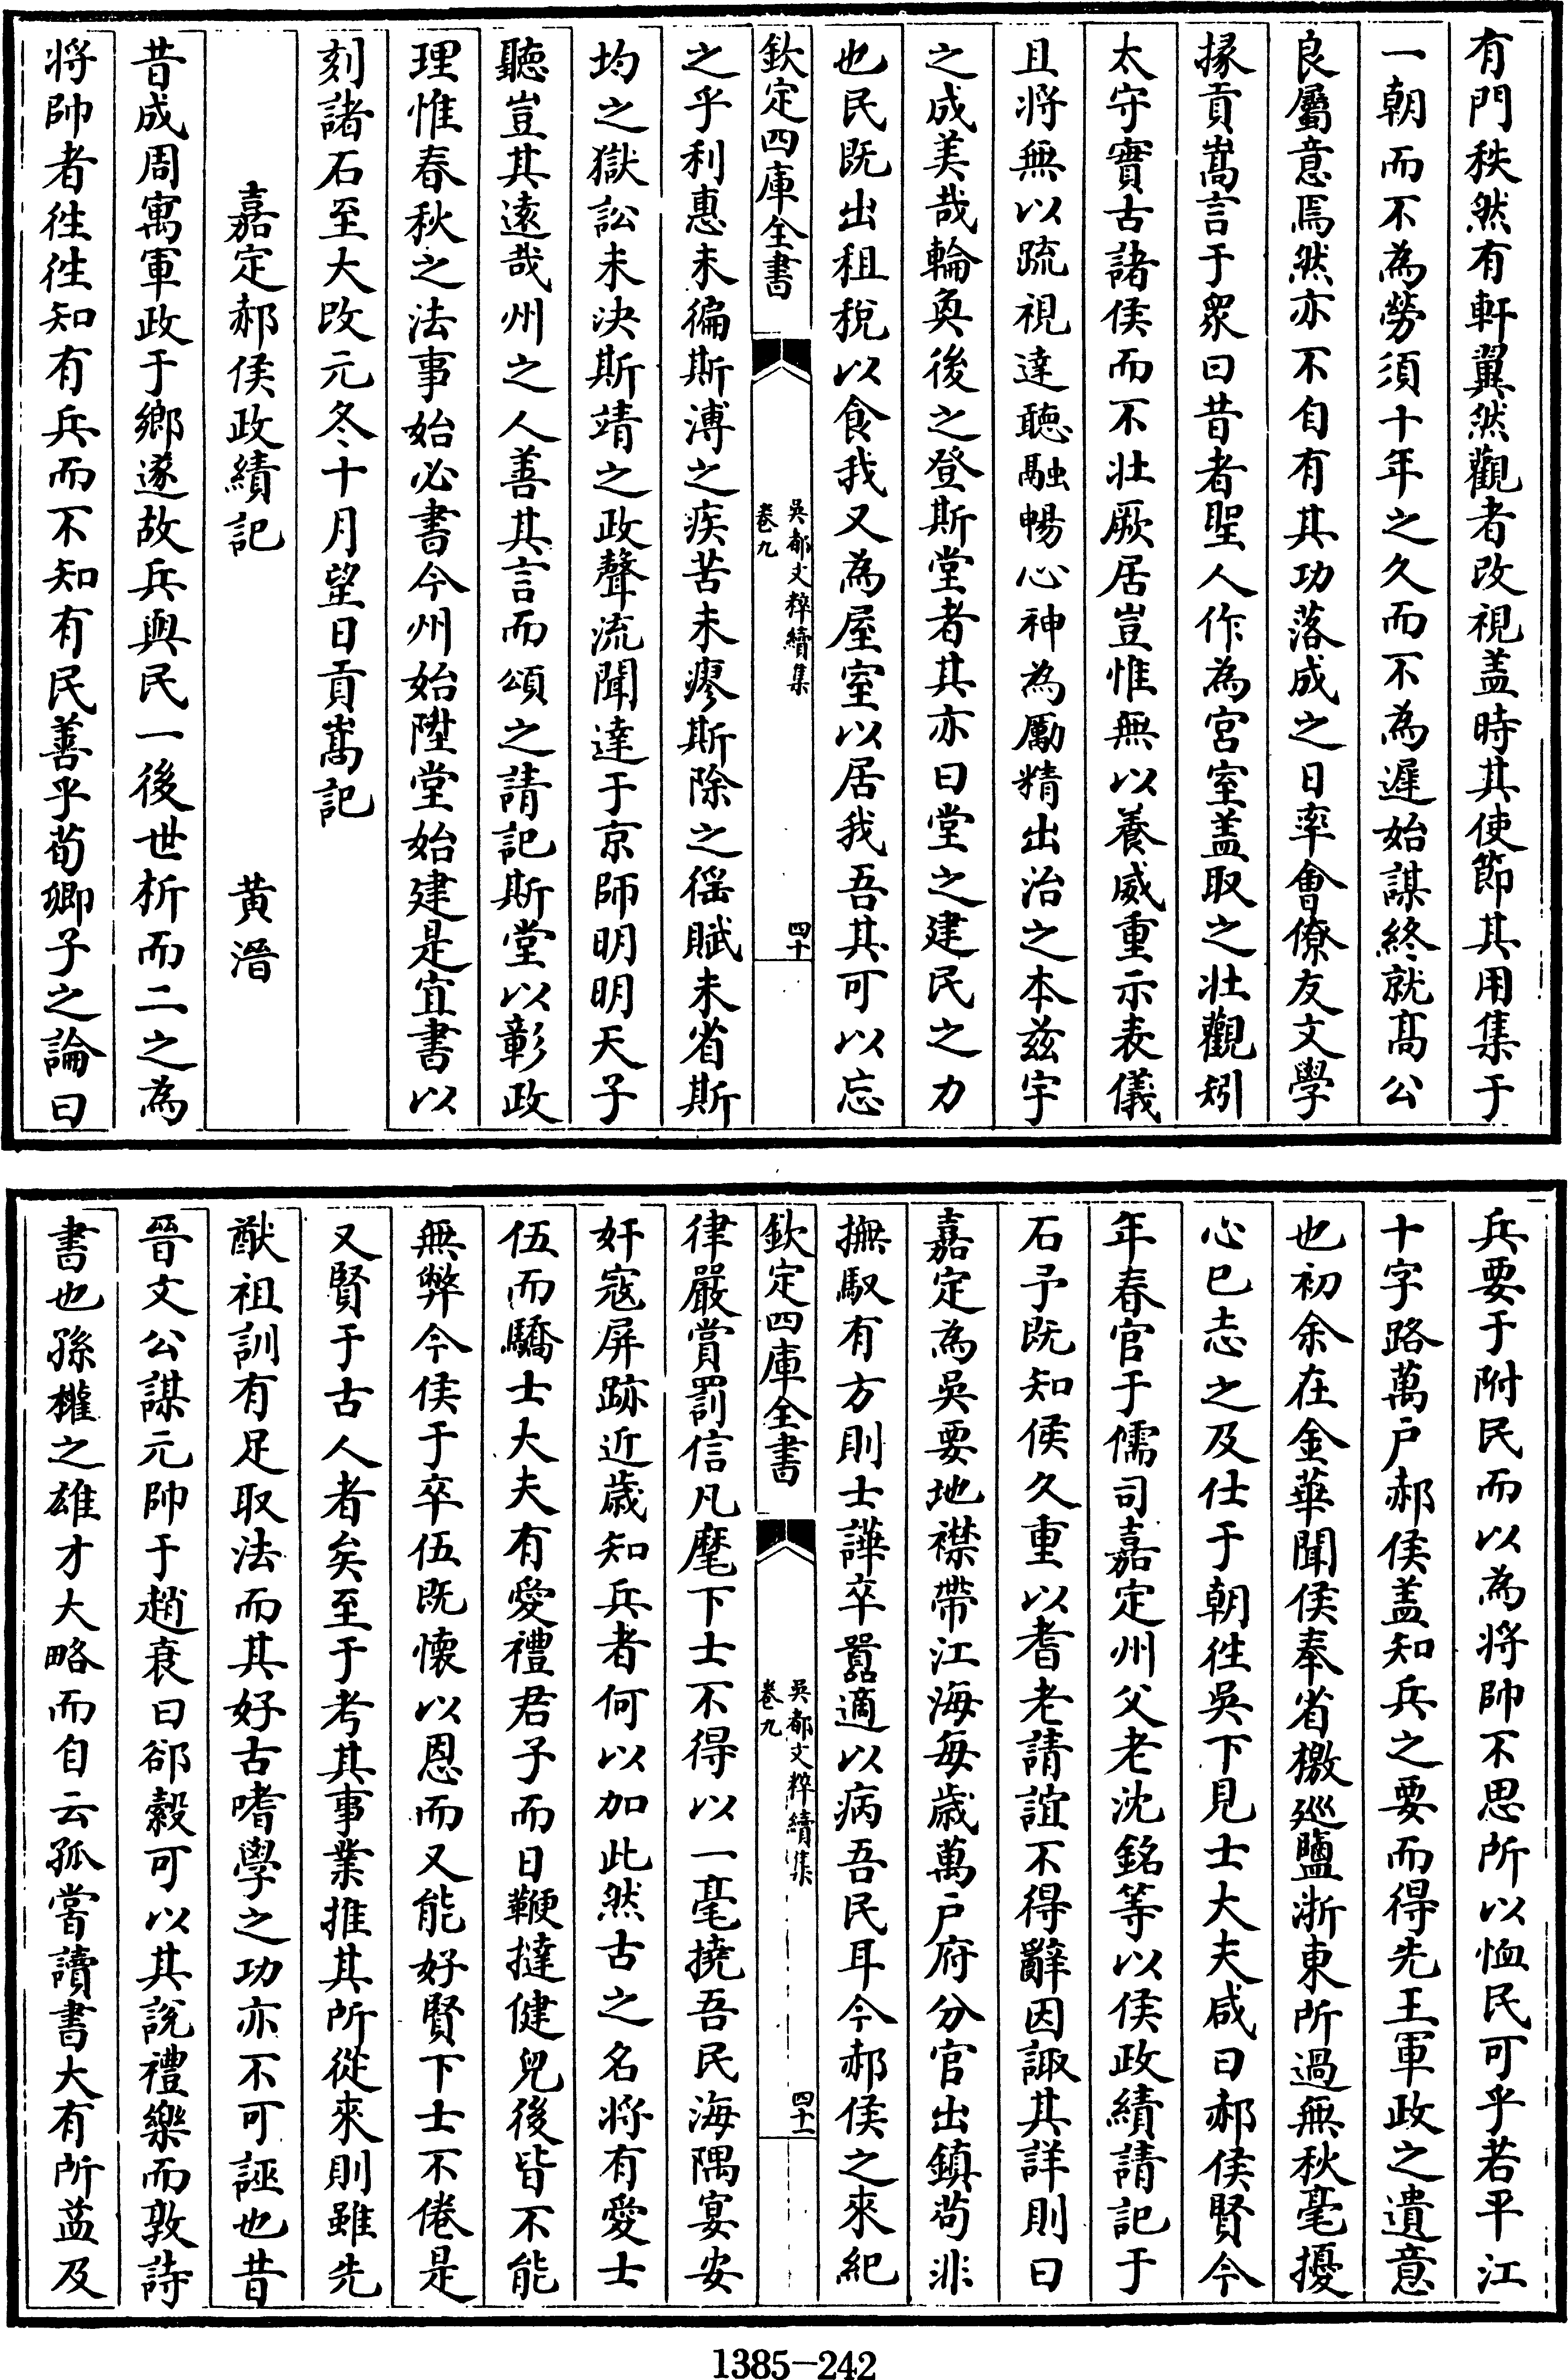 有門秩然有軒翼然觀者改視盖時其使節其用集于
一朝而不為勞須十年之久而不為遲始謀終就髙公
良屬意焉然亦不自有其功落成之日率會僚友文學
掾貢嵩言于衆曰昔者聖人作為宮室盖取之壯觀矧
太守實古諸侯而不壯厥居豈惟無以養威重示表儀
且将無以疏視達聽融暢心神為勵精出治之本兹宇
之成美哉輪奐後之登斯堂者其亦曰堂之建民之力
也民既出租稅以食我又為屋室以居我吾其可以忘
欽定四庫全書
吳都文粹續集
卷九
四十
之乎利惠未徧斯溥之疾苦未瘳斯除之徭賦未省斯
均之獄訟未決斯靖之政聲流聞達于京師明明天子
聽豈其遠哉州之人善其言而頌之請記斯堂以彰政
理惟春秋之法事始必書今州始陞堂始建是宜書以
刻諸石至大改元冬十月望日貢嵩記
嘉定郝侯政績記 黄溍
昔成周寓軍政于鄉遂故兵與民一後世析而二之為
将帥者徃徃知有兵而不知有民善乎荀卿子之論曰
兵要于附民而以為将帥不思所以恤民可乎若平江
十字路萬户郝侯盖知兵之要而得先王軍政之遺意
也初余在金華聞侯奉省檄廵鹽浙東所過無秋毫擾
心已志之及仕于朝徃吳下見士大夫咸曰郝侯賢今
年春官于儒司嘉定州父老沈銘等以侯政績請記于
石予既知侯久重以耆老請誼不得辭因諏其詳則曰
嘉定為吳要地襟帶江海每歲萬户府分官出鎮茍非
撫馭有方則士譁卒嚣適以病吾民耳今郝侯之來紀
欽定四庫全書
吳都文粹續集
卷九
四十一
律嚴賞罰信凡麾下士不得以一毫撓吾民海隅宴安
奸寇屏跡近歲知兵者何以加此然古之名将有愛士
伍而驕士大夫有愛禮君子而日鞭撻健兒後皆不能
無弊今侯于卒伍既懷以恩而又能好賢下士不倦是
又賢于古人者矣至于考其事業推其所從來則雖先
猷祖訓有足取法而其好古嗜學之功亦不可誣也昔
晉文公謀元帥于趙衰曰郤縠可以其說禮樂而敦詩
書也孫權之雄才大略而自云孤嘗讀書大有所益及
1385-242